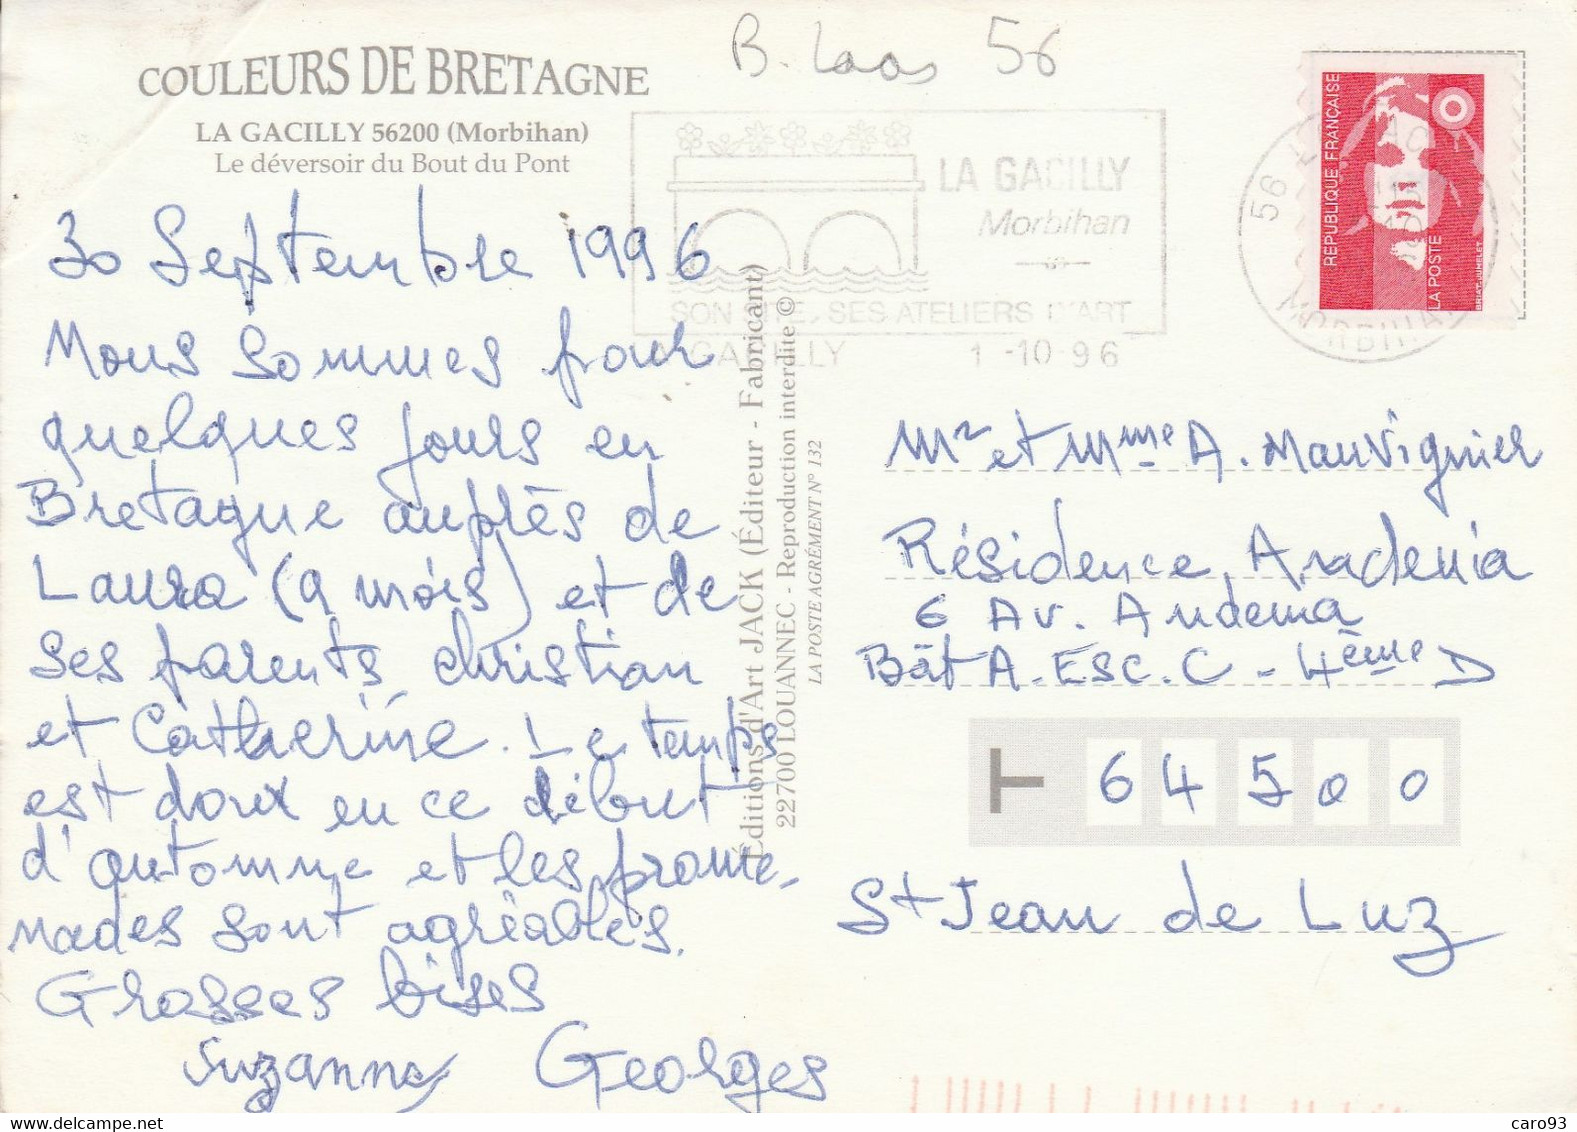 B. Laas 56
COULEURS DE BRETAGNE
LA GACILLY 56200 (Morbihan)
Le déversoir du Bout du Pont
30 Septembre 1996
Nous sommes pour
quelques jours en
Bretagne auprès de
Laura (9 mois) et de
ses parents Christian
et Catherine. Le temps
est doux en ce début
d'automne et les prome-
nades sont agréables.
Grosses bises
Suzanne Georges
Éditions d'Art JACK (Éditeur - Fabricant)
22700 LOUANNEC - Reproduction interdite ©
LA POSTE AGRÉMENT N° 132
LA GACILLY
Morbihan
SON SITE, SES ATELIERS D'ART
LA GACILLY 1 -10-96
56
MORBIHAN
REPUBLIQUE FRANÇAISE
LA POSTE
BRIAT-JUMELET
Mr et Mme A. Mauvignier
Résidence Aradenia
6 Av. Andema
Bât A. Esc. C - 4ème D
64500
St Jean de Luz
caro93